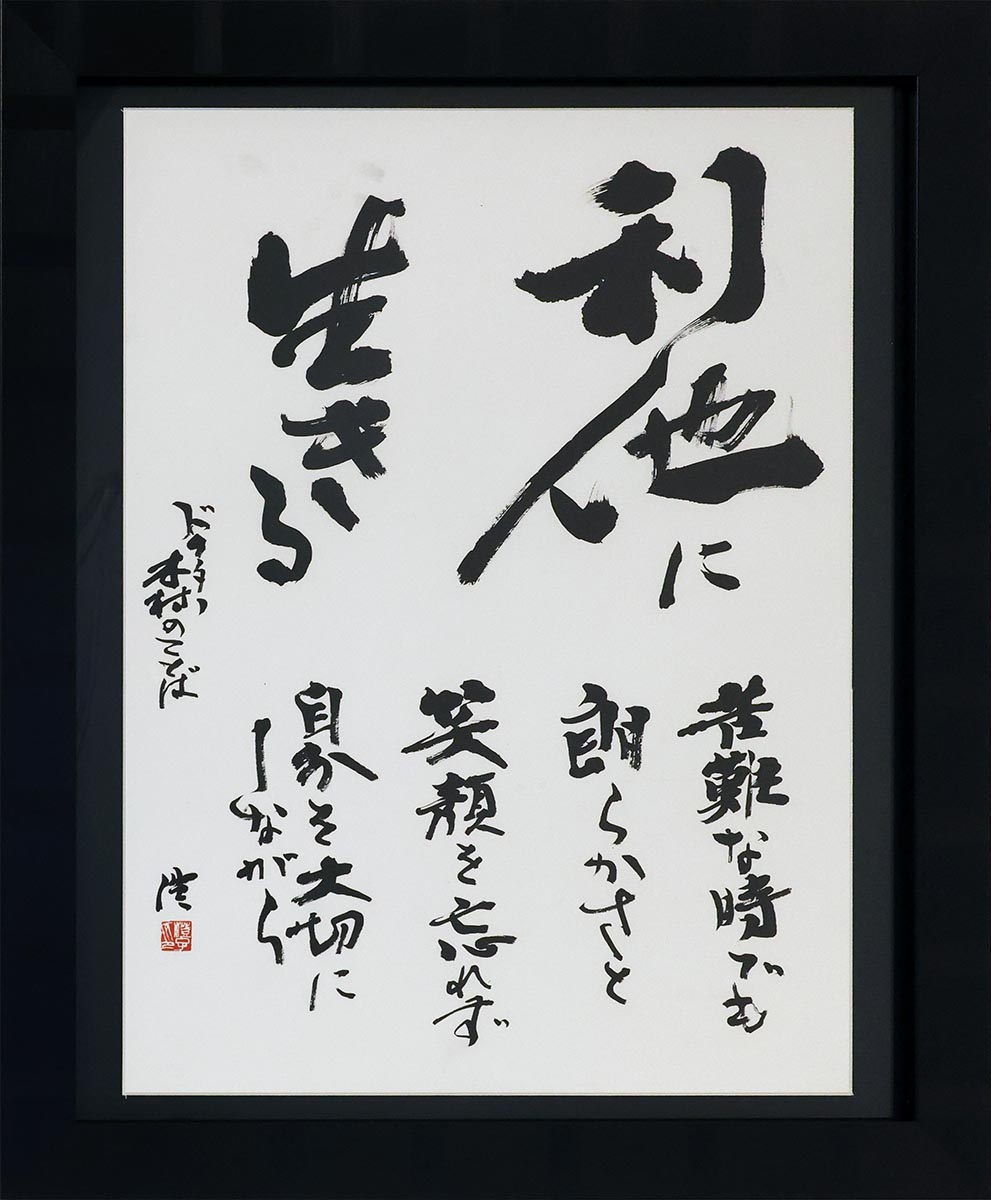 利他に
生きる
苦難な時でも
朗らかさと
笑顔を忘れず
自分を大切に
しながら
村のことば